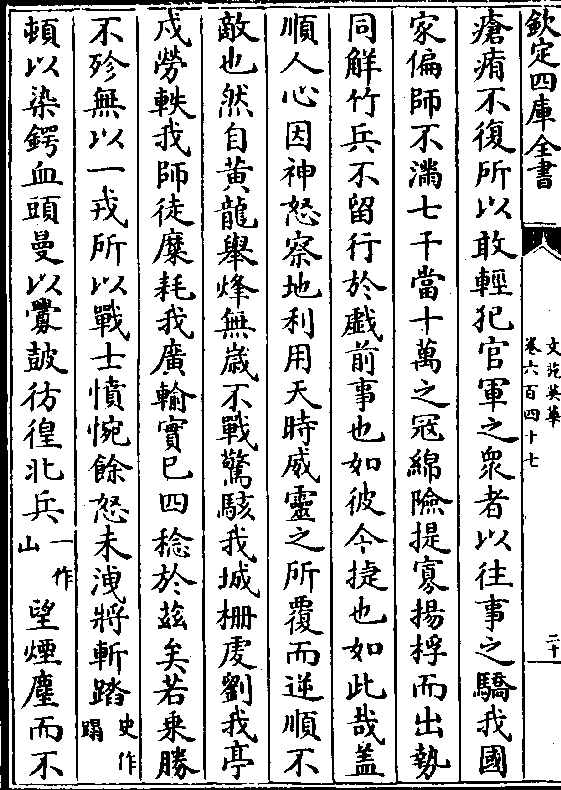 欽定四庫全書
文苑英華
卷六百四十七
二十
瘡痏不復所以敢輕犯官軍之衆者以往事之驕我國
家偏師不滿七千當十萬之冦綿險提寡揚桴而出勢
同解竹兵不留行於戯前事也如彼今捷也如此哉盖
順人心因神怒察地利用天時威靈之所覆而逆順不
敵也然自黄龍舉烽無歲不戰驚駭我城柵虔劉我亭
戍勞軼我師徒糜耗我廣輸實巳四稔於兹矣若乗勝
不殄無以一戎所以戰士憤惋餘怒未洩將斬踏史作蹋
頓以染鍔血頭曼以釁鼓彷徨北兵一作山望煙塵而不